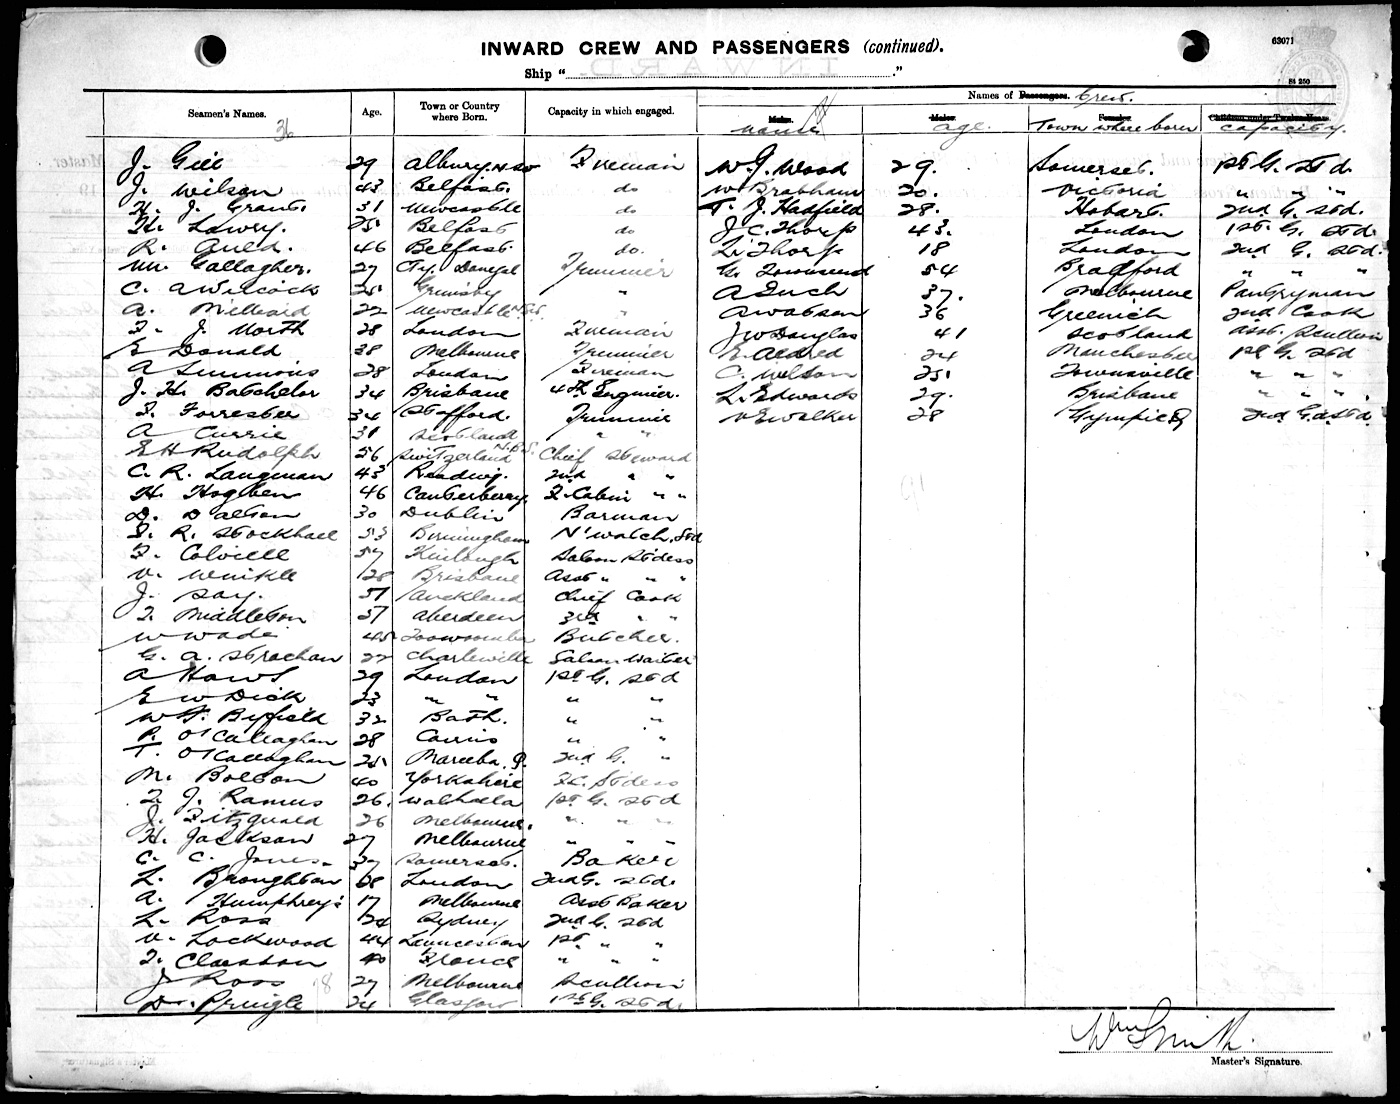 63071
INWARD CREW AND PASSENGERS (continued).
Ship " "
St 250
Seamen's Names. Age. Town or Country where Born. Capacity in which engaged. Names of Passengers. Crew.
36
Males. Males. Females. Children under Twelve Years.
Names age. Town where born capacity.
J. Gill 29 Albury. NSW Fireman
J. Wilson 43 Belfast. do
H. J. Grant. 31 Newcastle do
H. Lowry. 25 Belfast do
R. Auld. 46 Belfast do.
Wm. Gallagher. 27 Cty. Donegal Trimmer
C. A Wilcock 25 Grimsby "
A. Millard 22 Newcastle N.S.W. "
F. J. North 28 London Fireman
E Donald 38 Melbourne Trimmer
A Simmons 28 London Fireman
J. H. Batchelor 34 Brisbane 4th Engineer.
F. Forrester 34 Stafford. Trimmer
A Currie 31 Scotland " "
E H Rudolph 56 Switzerland N.B.S. Chief Steward
C. R. Langman 43 Reading. 2nd " "
H. Hogben 46 Canterberry. F. Cabin " "
D. Dalton 30 Dublin Barman
F. R. Stockhall 53 Birmingham N'watch. Std
F. Colville 57 Kinlough Saloon Stdess
V. Winkle 28 Brisbane Asst " " "
J. Say. 51 Auckland Chief Cook
F. Middleton 37 Aberdeen 3rd " "
W Wade 45 Toowoomba Butcher.
G. A. Strachan 22 Charleville Saloon Waiter
A Haws 29 London 1st G. Std
E W Dick 23 " " " "
W F. Byfield 32 Bath. " "
P. O'Callaghan 28 Cairns " "
T. O'Callaghan 25 Mareeba Q. 2nd G. "
M. Bolton 40 Yorkshire F.C. Stdess
F. J. Ramus 26. Walhalla 1st G. Std
J. Fitzgerald 26 Melbourne. " " "
H. Jackson 27 Melbourne " " "
C. C. Jones. 37 Somerset. Baker
L. Broughton 28 London 2nd G. Std.
A. Humphreys 17 Melbourne Asst Baker
L. Ross 24 Sydney 2nd G. Std
V. Lockwood 44 Launceston 1st " "
F. Claeson 40 France " " "
J Ross 27 Melbourne Scullion
D. Pringle 24 Glasgow 1st G. Std.
W. G. Wood 29. Somerset. 1st G. Std.
W Brabham 20. Victoria " " "
T. J. Hadfield 28. Hobart. 2nd G. Std.
J. C. Thorp 43. London 1st. G. Std.
L. Thorp 18 London 2nd G. Std.
G. Townsend 54 Bradford " " "
A Tuch 37. Melbourne Pantryman
A Watson 36 Greenich 2nd Cook
J W Douglas 41 Scotland Asst. Scullion
E. Aldred 24 Manchester 1st G Std
C. Wilson 25. Townsville " " "
L. Edwards 29. Brisbane " " "
V E Walker 28 Gympie Q 2nd G. Std.
91
18
Wm Smith.
Master's Signature.